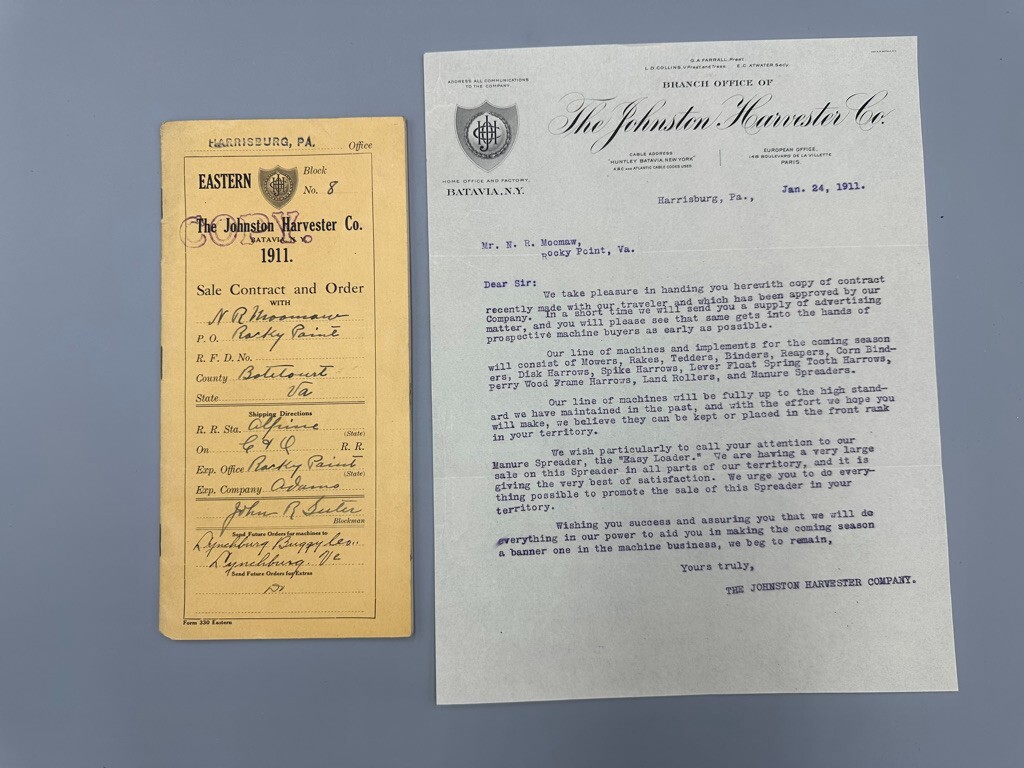 HARRISBURG, PA. Office
EASTERN
Block
No. 8
COPY.
The Johnston Harvester Co.
BATAVIA, N.Y.
1911.
Sale Contract and Order
WITH
N R Moomaw
P. O. Rocky Point
R. F. D. No.
County Botetourt
State Va
Shipping Directions
R. R. Sta. Alpine
(State)
On C & O R. R.
Exp. Office Rocky Point
(State)
Exp. Company Adams
John R
Blockman
Send Future Orders for machines to
Lynchburg Buggy Co.
Lynchburg Va
Send Future Orders for Extras
Do
Form 330 Eastern
G. A. FARRALL, Prest.
L. D. COLLINS, V. Prest. and Treas. E. C. ATWATER, Secy.
ADDRESS ALL COMMUNICATIONS
TO THE COMPANY
BRANCH OFFICE OF
The Johnston Harvester Co.
HOME OFFICE AND FACTORY,
BATAVIA, N.Y.
CABLE ADDRESS
"HUNTLEY BATAVIA, NEW YORK"
A B C AND ATLANTIC CABLE CODES USED.
EUROPEAN OFFICE,
BOULEVARD DE LA VILLETTE
PARIS.
Harrisburg, Pa., Jan. 24, 1911.
Mr. N. R. Moomaw,
Rocky Point, Va.
Dear Sir:
We take pleasure in handing you herewith copy of contract
recently made with our traveler and which has been approved by our
Company. In a short time we will send you a supply of advertising
matter, and you will please see that same gets into the hands of
prospective machine buyers as early as possible.
Our line of machines and implements for the coming season
will consist of Mowers, Rakes, Tedders, Binders, Reapers, Corn Bind-
ers, Disk Harrows, Spike Harrows, Lever Float Spring Tooth Harrows,
Perry Wood Frame Harrows, Land Rollers, and Manure Spreaders.
Our line of machines will be fully up to the high stand-
ard we have maintained in the past, and with the effort we hope you
will make, we believe they can be kept or placed in the front rank
in your territory.
We wish particularly to call your attention to our
Manure Spreader, the "Easy Loader." We are having a very large
sale on this Spreader in all parts of our territory, and it is
giving the very best of satisfaction. We urge you to do every-
thing possible to promote the sale of this Spreader in your
territory.
Wishing you success and assuring you that we will do
everything in our power to aid you in making the coming season
a banner one in the machine business, we beg to remain,
Yours truly,
THE JOHNSTON HARVESTER COMPANY.